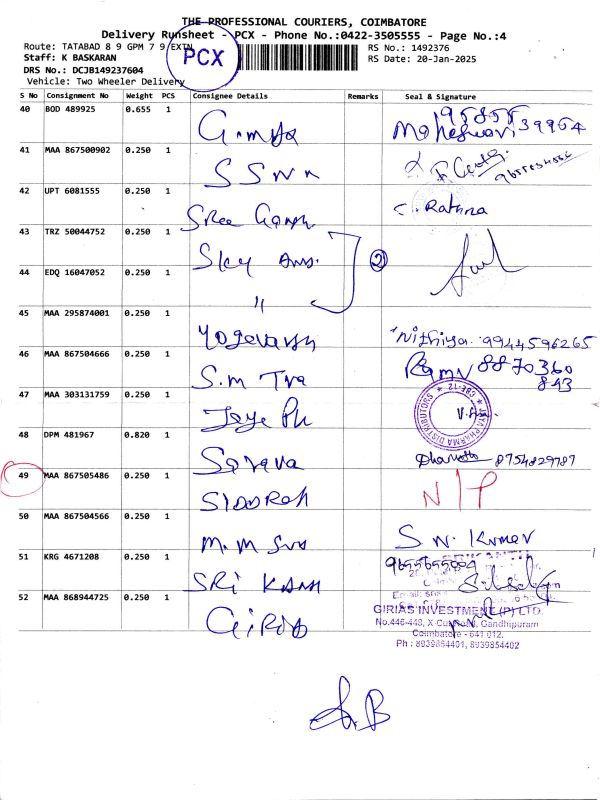 THE PROFESSIONAL COURIERS, COIMBATORE
Delivery Runsheet - PCX - Phone No.:0422-3505555 - Page No.:4
Route: TATABAD 8 9 GPM 7 9 EXTN
RS No.: 1492376
Staff: K BASKARAN
PCX
RS Date: 20-Jan-2025
DRS No.: DCJB149237604
Vehicle: Two Wheeler Delivery
S No Consignment No Weight PCS Consignee Details Remarks Seal & Signature
40 BOD 489925 0.655 1
Maheswari 39964
41 MAA 867500902 0.250 1 SSWN
42 UPT 6081555 0.250 1 Sree Ganesh C. Rathna
43 TRZ 50044752 0.250 1 Sky Ams. 2
44 EDQ 16047052 0.250 1 "
45 MAA 295874001 0.250 1 Nithiya. 9944596265
46 MAA 867504666 0.250 1 S.m Tra Ramu 8870360
843
47 MAA 303131759 0.250 1 Jaye Ph
PHARMA DISTRIBUTORS CBE-12
48 DPM 481967 0.820 1 Sarava 8754829787
49 MAA 867505486 0.250 1 N/P
50 MAA 867504566 0.250 1 M.M S.N. Kumar
51 KRG 4671208 0.250 1 SRI 9655655004
52 MAA 868944725 0.250 1 GIRIAS
GIRIAS INVESTMENT (P) LTD.
No.446-448, X-Cut Road, Gandhipuram
Coimbatore - 641 012.
Ph : 8939854401, 8939854402